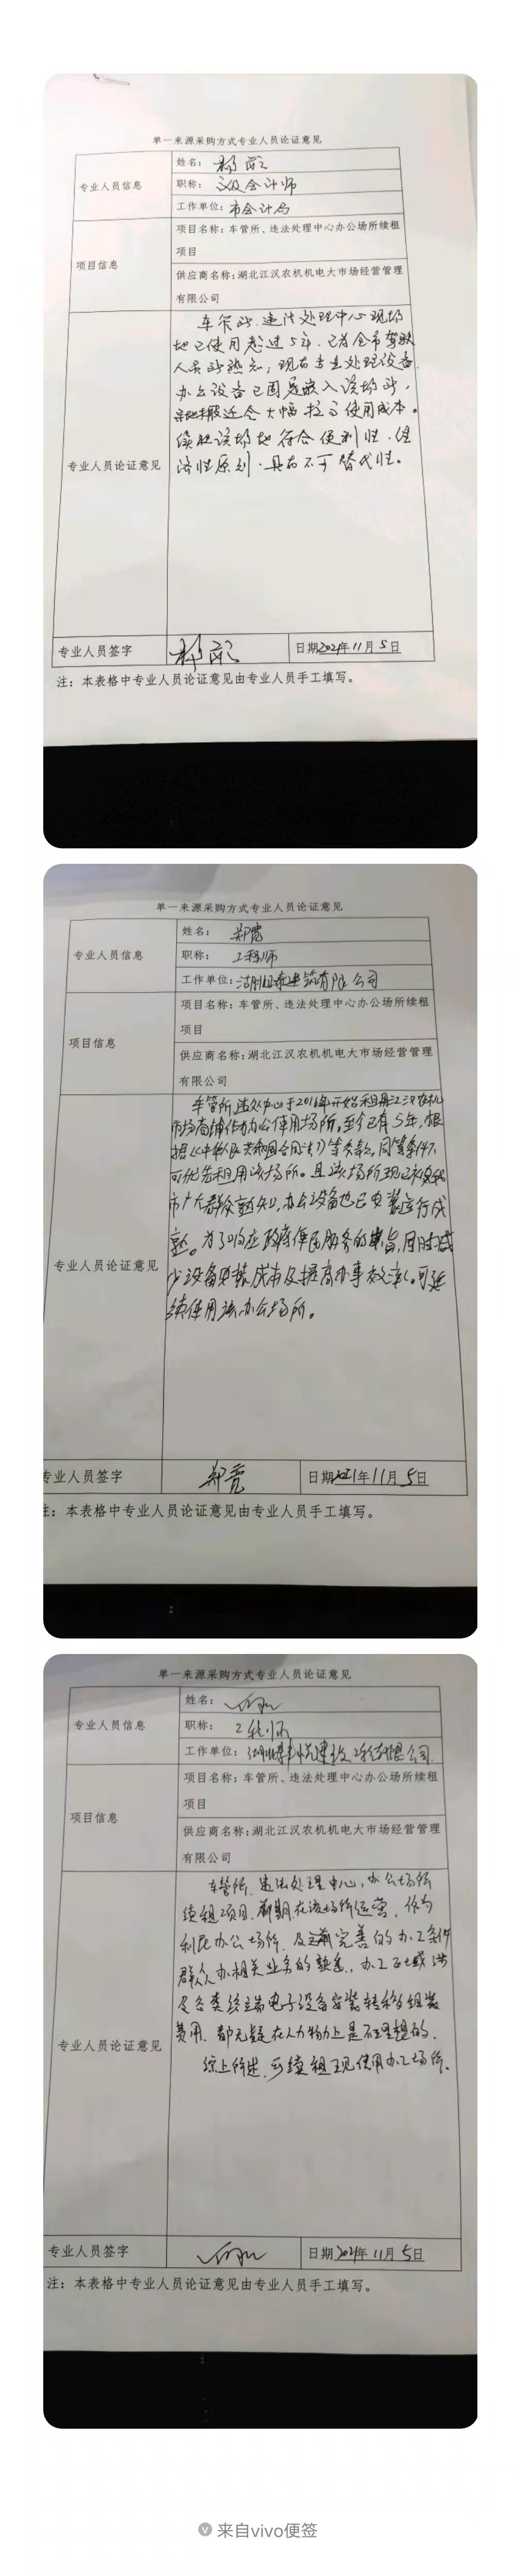 单一来源采购方式专业人员论证意见
专业人员信息
姓名:
职称: 会计师
工作单位: 市会计局
项目信息
项目名称: 车管所、违法处理中心办公场所续租
项目
供应商名称: 湖北江汉农机机电大市场经营管理
有限公司
专业人员论证意见
车管所、违法处理中心现场
地已使用超过5年,已为全市驾驶
人员所熟知,现有专业处理设备
办公设备已固定嵌入该场所,
会大幅拉高使用成本。
续租该场地符合便利性、经
济性原则,具有不可替代性。
专业人员签字
日期2021年11月5日
注: 本表格中专业人员论证意见由专业人员手工填写。
单一来源采购方式专业人员论证意见
专业人员信息
姓名: 郑亮
职称: 工程师
工作单位: 建筑有限公司
项目信息
项目名称: 车管所、违法处理中心办公场所续租
项目
供应商名称: 湖北江汉农机机电大市场经营管理
有限公司
专业人员论证意见
车管所,违处中心于2016年开始租用江汉农机
市场商铺作为办公使用场所,至今已有5年,根
据《中华人民共和国合同法》等条款,同等条件下
可优先租用该场所。且该场所现已被我
市广大群众熟知,办公设备也已安装运行成
熟。为了响应政府便民服务的宗旨,同时减
少设备安装成本及提高办事效率。可延
续使用该办公场所。
专业人员签字
郑亮
日期2021年11月5日
注: 本表格中专业人员论证意见由专业人员手工填写。
单一来源采购方式专业人员论证意见
专业人员信息
姓名:
职称: 工程师
工作单位: 有限公司
项目信息
项目名称: 车管所、违法处理中心办公场所续租
项目
供应商名称: 湖北江汉农机机电大市场经营管理
有限公司
专业人员论证意见
车管所、违法处理中心,办公场所
续租项目,前期在该场所运营,作为
利民办公场所,及完善的办公条件
群众办相关业务的熟悉,办公区域涉
及各类终端电子设备安装转移组装
费用,都无疑在人力物力上是不理想的。
综上所述,可续租现使用办公场所。
专业人员签字
日期2021年11月5日
注: 本表格中专业人员论证意见由专业人员手工填写。
来自vivo便签